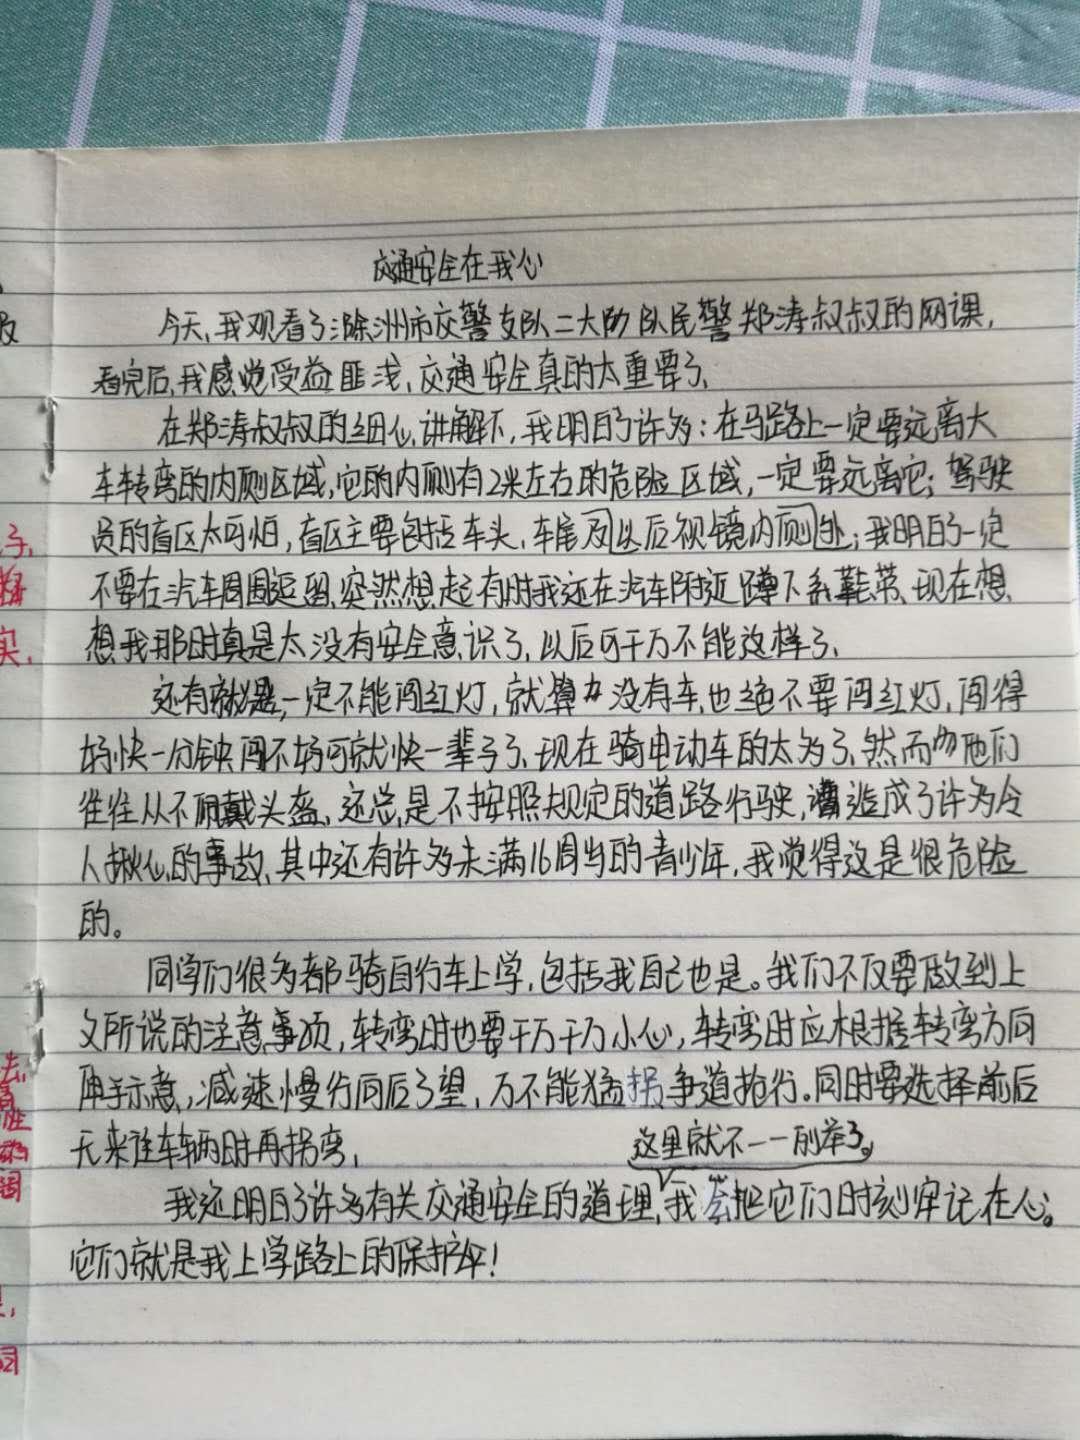 交通安全在我心
今天,我观看了滁洲市交警支队二大队民警郑涛叔叔的网课,
看完后,我感觉受益匪浅,交通安全真的太重要了、
在郑涛叔叔的细心讲解下,我明白了许多:在马路上一定要远离大
车转弯的内侧区域,它的内侧有2米左右的危险区域,一定要远离它;驾驶
员的盲区太可怕,盲区主要包括车头、车尾及以后视镜内侧处;我明白了一定
不要在汽车周围逗留、突然想起有时我还在汽车附近蹲下系鞋带、现在想
想我那时真是太没有安全意识了,以后可千万不能这样了、
还有就是,一定不能闯红灯,就算没有车,也绝不要闯红灯,闯得
好快一分钟,闯不好可就快一辈子了、现在骑电动车的太多了、然而他们
往往从不佩戴头盔、还总是不按照规定的道路行驶,造成了许多令
人揪心的事故、其中还有许多未满16周岁的青少年,我觉得这是很危险
的。
同学们很多都骑自行车上学,包括我自己也是。我们不仅要做到上
文所说的注意事项,转弯时也要千万千万小心,转弯时应根据转弯方向
用手示意,减速慢行向后了望,万不能猛拐争道抢行。同时要选择前后
无来往车辆时再拐弯、
这里就不一一列举了。
我还明白了许多有关交通安全的道理、我会把它们时刻牢记在心。
它们就是我上学路上的保护伞!